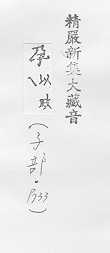 精嚴新集大藏音
孕以
(子部·P33)